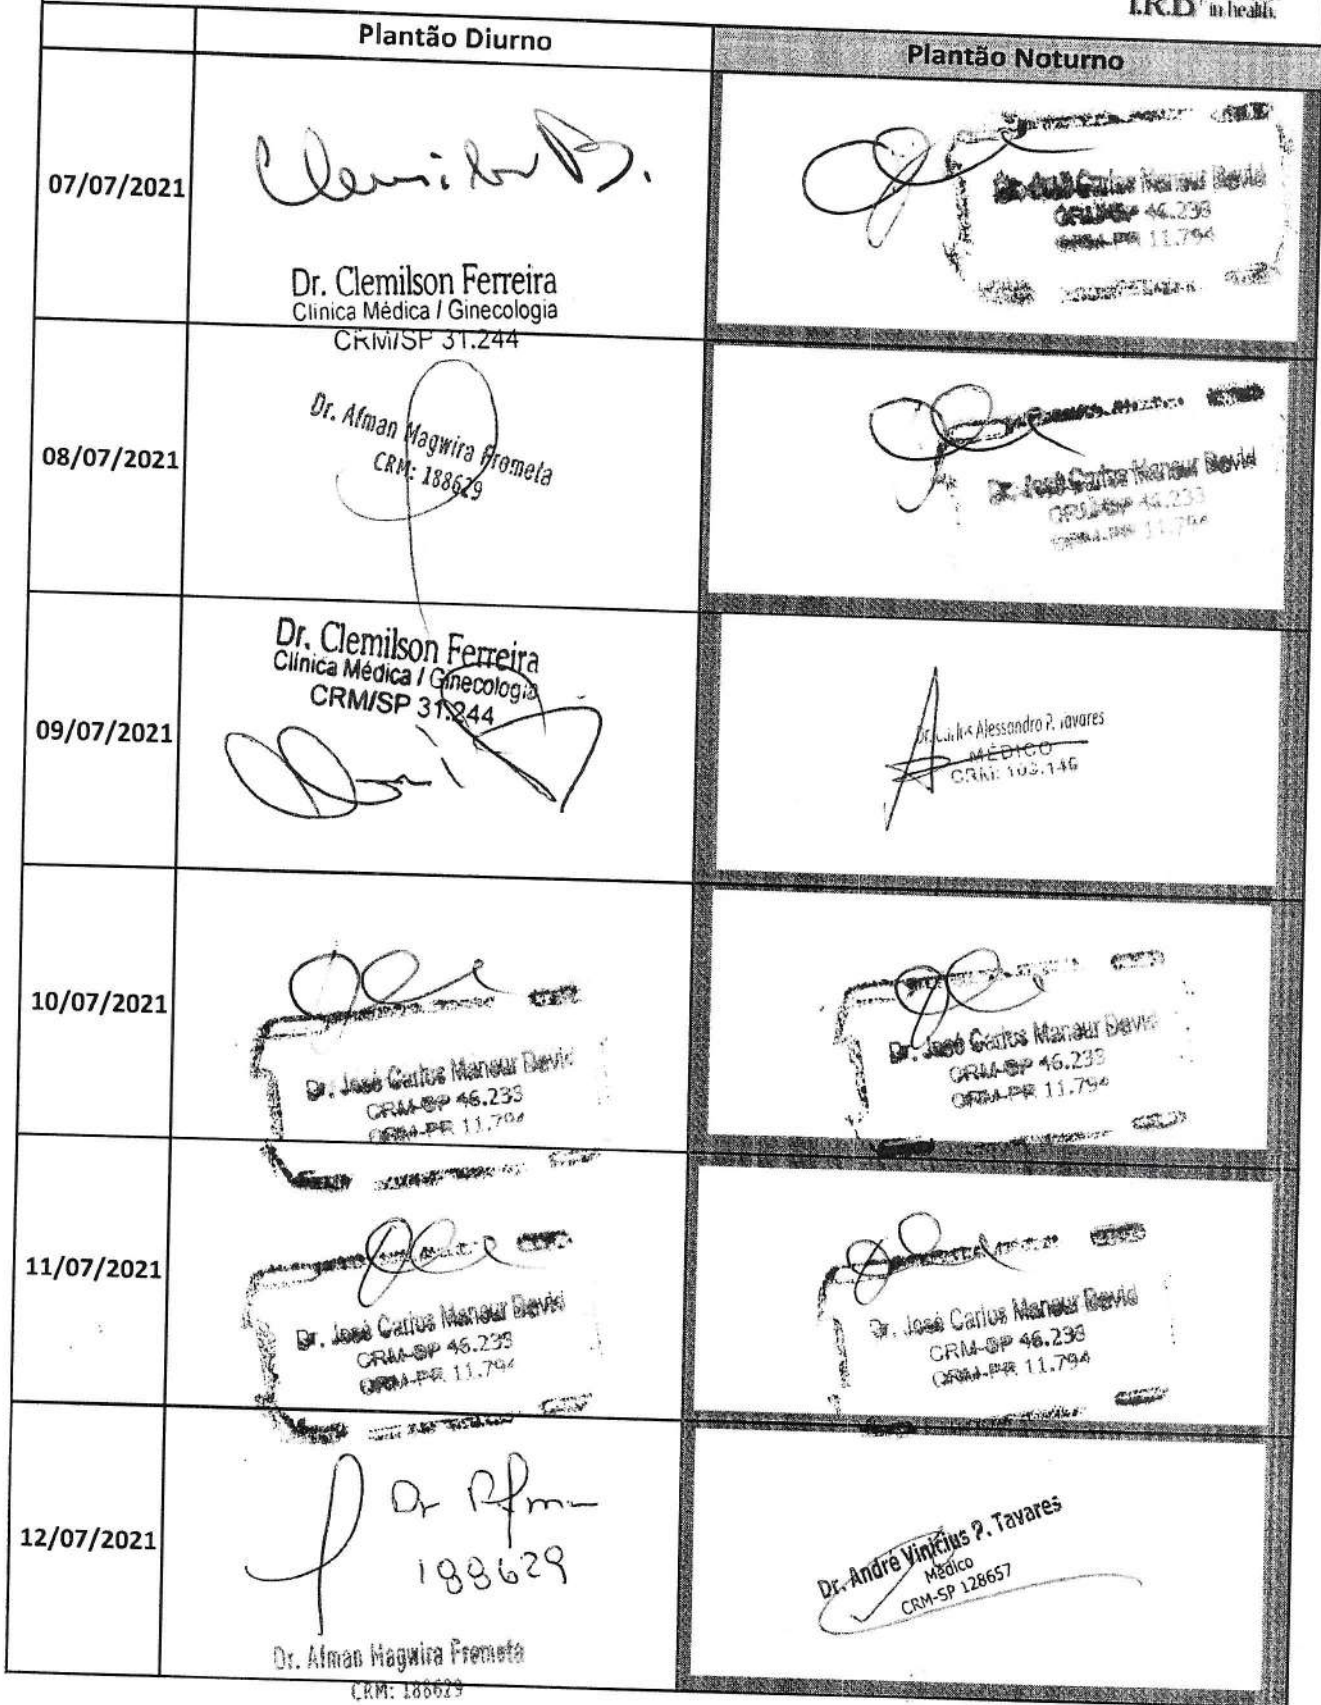 I.R.D in health.
Plantão Diurno
Plantão Noturno
07/07/2021
Clemilson B.
Dr. Clemilson Ferreira
Clínica Médica / Ginecologia
CRM/SP 31.244
Dr. José Carlos Mansur David
CRM-SP 46.233
CRM-PR 11.794
08/07/2021
Dr. Afman Magwira Frometa
CRM: 188629
Dr. José Carlos Mansur David
CRM-SP 46.233
CRM-PR 11.794
09/07/2021
Dr. Clemilson Ferreira
Clínica Médica / Ginecologia
CRM/SP 31.244
Dr. Carlos Alessandro P. Tavares
MÉDICO
CRM: 103.146
10/07/2021
Dr. José Carlos Mansur David
CRM-SP 46.233
CRM-PR 11.794
Dr. José Carlos Mansur David
CRM-SP 46.233
CRM-PR 11.794
11/07/2021
Dr. José Carlos Mansur David
CRM-SP 46.233
CRM-PR 11.794
Dr. José Carlos Mansur David
CRM-SP 46.233
CRM-PR 11.794
12/07/2021
Dr Afman
188629
Dr. Afman Magwira Frometa
CRM: 188629
Dr. André Vinicius P. Tavares
Médico
CRM-SP 128657